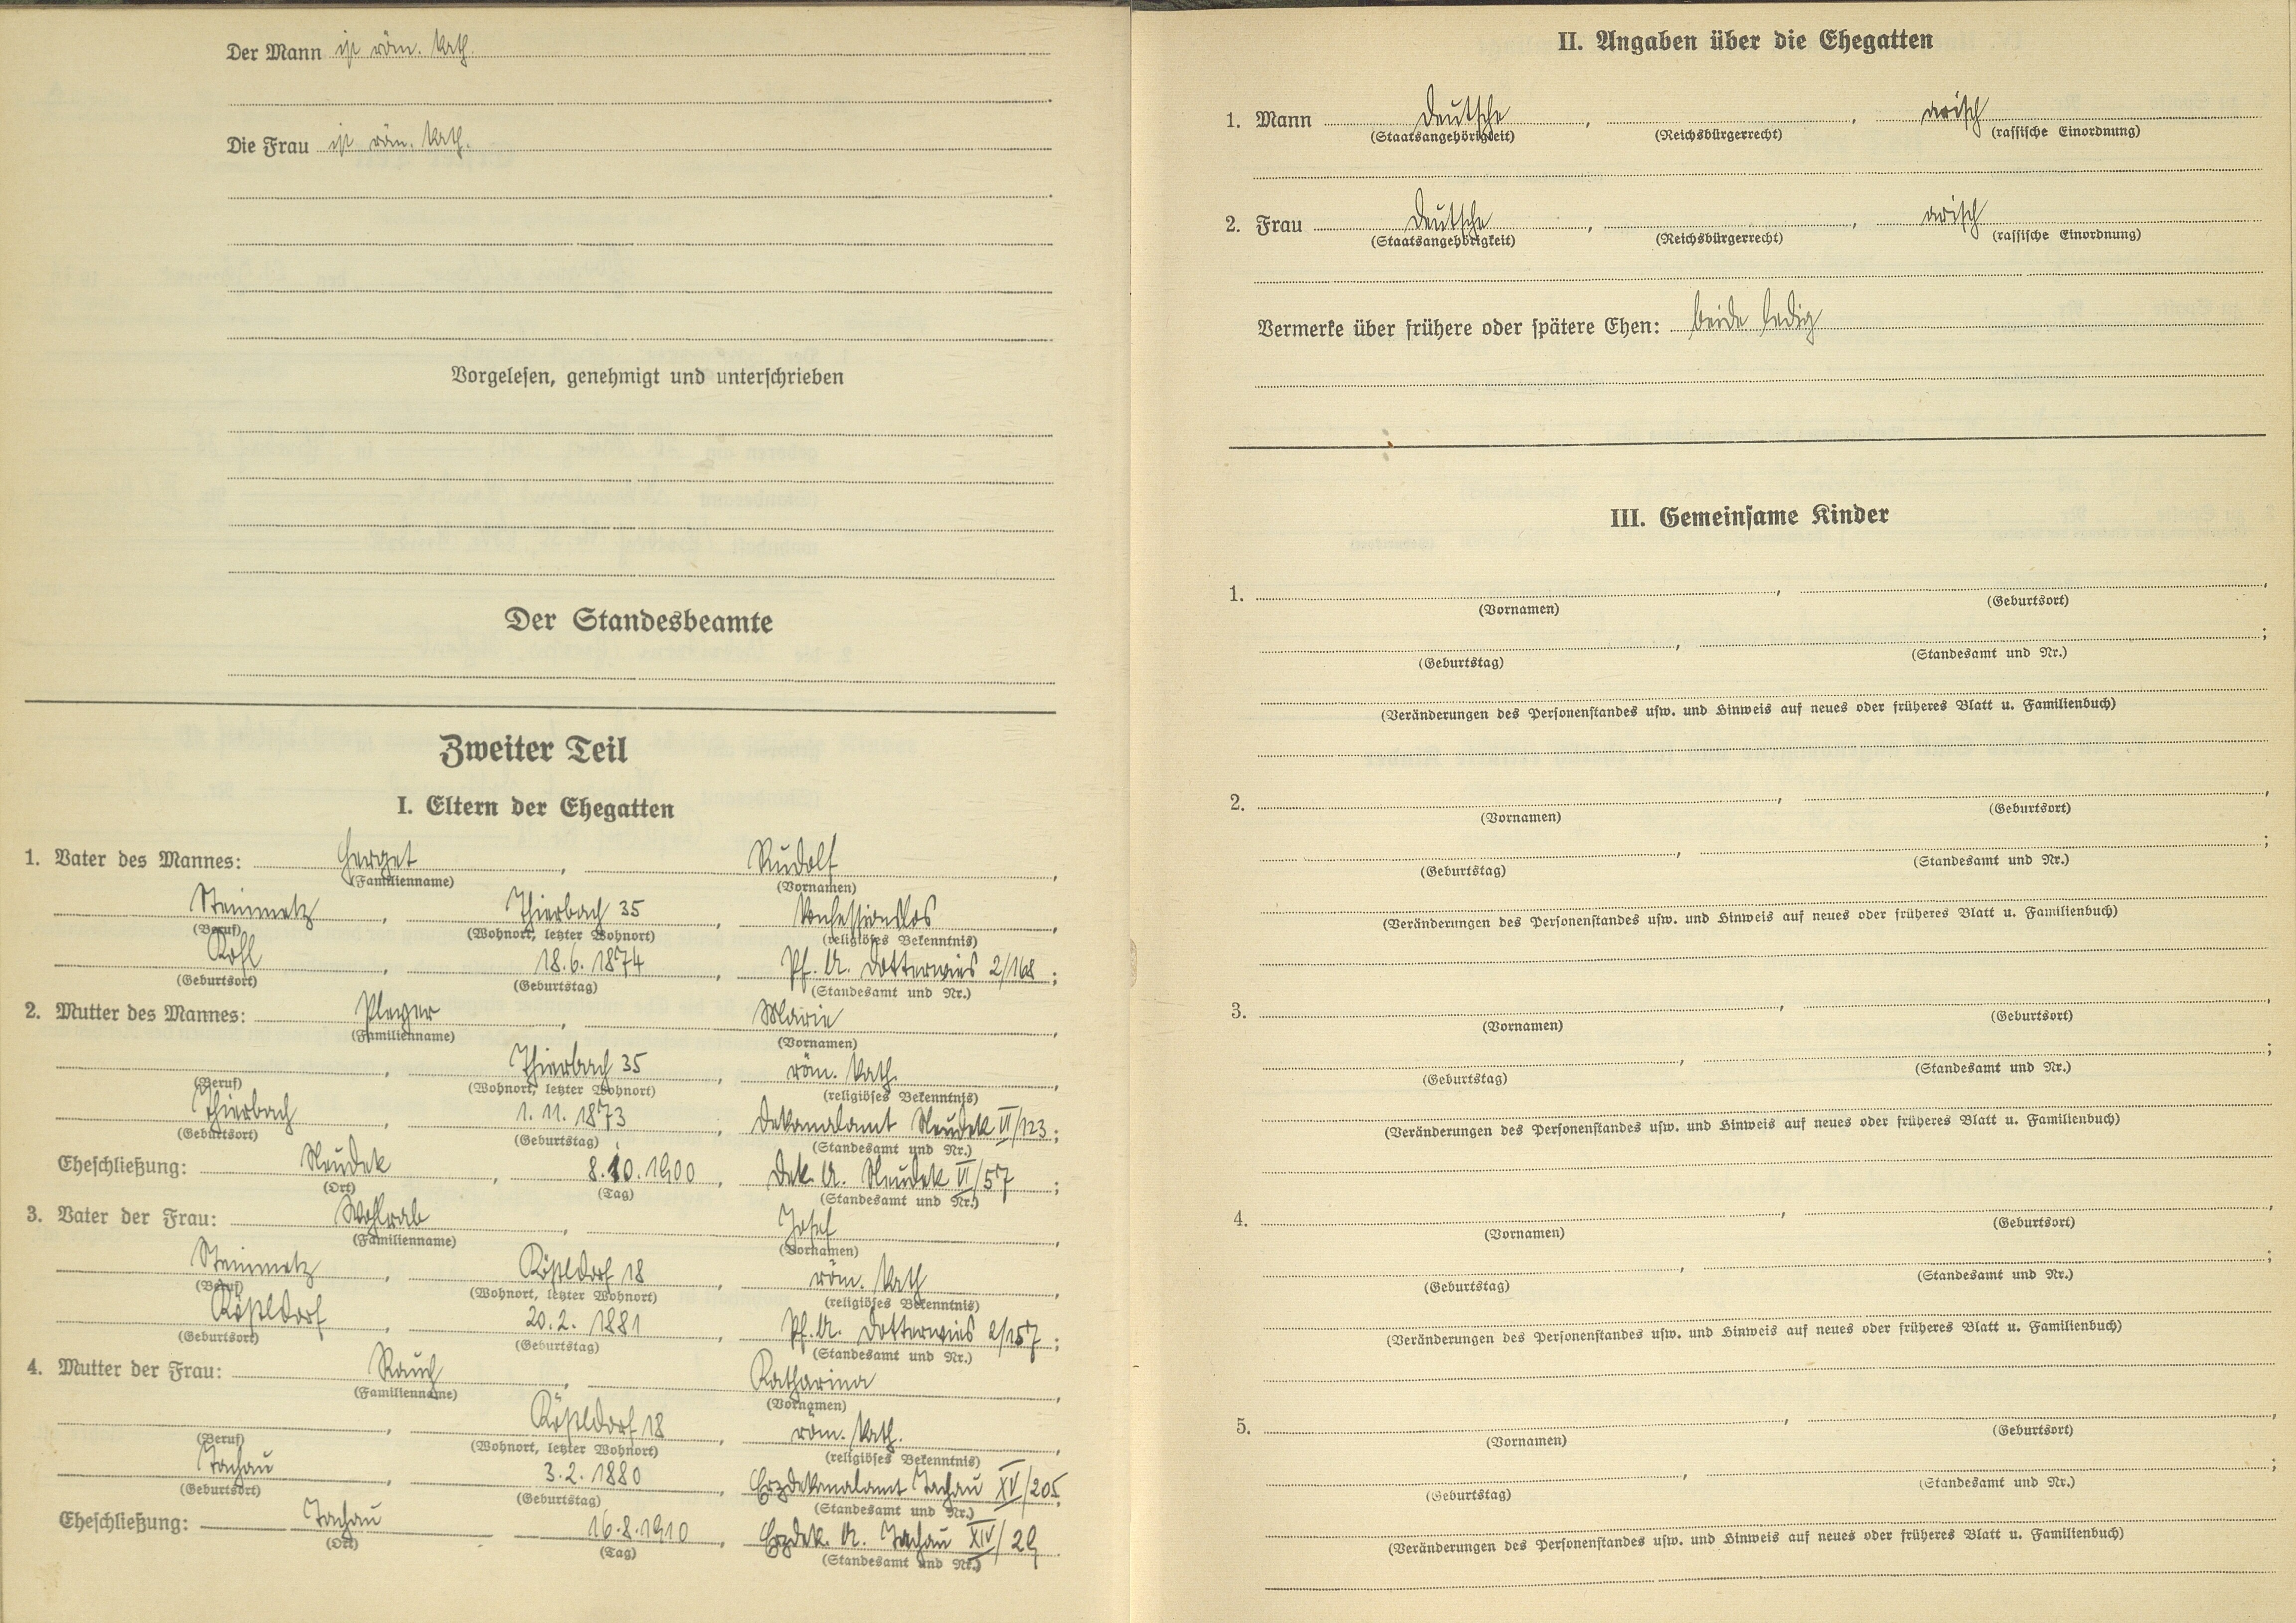 Der Mann ist röm. kath.
Die Frau ist röm. kath.
Vorgelesen, genehmigt und unterschrieben
Der Standesbeamte
Zweiter Teil
I. Eltern der Ehegatten
1. Vater des Mannes: Herget, Rudolf,
(Familienname) (Vornamen)
Steinmetz, Thierbach 35, Konfessionslos,
(Beruf) (Wohnort, letzter Wohnort) (religiöses Bekenntnis)
Kösl, 18.6.1874, Pf. A. Dotterwies 2/168;
(Geburtsort) (Geburtstag) (Standesamt und Nr.)
2. Mutter des Mannes: Pleyer, Marie,
(Familienname) (Vornamen)
, Thierbach 35, röm. kath.,
(Beruf) (Wohnort, letzter Wohnort) (religiöses Bekenntnis)
Thierbach, 1.11.1873, Dekanalamt Neudek VI/123;
(Geburtsort) (Geburtstag) (Standesamt und Nr.)
Eheschließung: Neudek, 8.10.1900, Dek. A. Neudek VI/57;
(Ort) (Tag) (Standesamt und Nr.)
3. Vater der Frau: Wohlrab, Josef,
(Familienname) (Vornamen)
Steinmetz, Kößldorf 18, röm. kath,
(Beruf) (Wohnort, letzter Wohnort) (religiöses Bekenntnis)
Kößldorf, 20.2.1881, Pf. A. Dotterwies 2/157;
(Geburtsort) (Geburtstag) (Standesamt und Nr.)
4. Mutter der Frau: Rauch, Katharina,
(Familienname) (Vornamen)
, Kößldorf 18, röm. kath.,
(Beruf) (Wohnort, letzter Wohnort) (religiöses Bekenntnis)
Tachau, 3.2.1880, Erzdekanalamt Tachau XV/205;
(Geburtsort) (Geburtstag) (Standesamt und Nr.)
Eheschließung: Tachau 16.8.1910, Erzdek. A. Tachau XIV/29
(Ort) (Tag) (Standesamt und Nr.)
II. Angaben über die Ehegatten
1. Mann Deutsche, , arisch
(Staatsangehörigkeit) (Reichsbürgerrecht) (rassische Einordnung)
2. Frau Deutsche, , arisch
(Staatsangehörigkeit) (Reichsbürgerrecht) (rassische Einordnung)
Vermerke über frühere oder spätere Ehen: beide ledig
III. Gemeinsame Kinder
1. , ,
(Vornamen) (Geburtsort)
, ;
(Geburtstag) (Standesamt und Nr.)
(Veränderungen des Personenstandes usw. und Hinweis auf neues oder früheres Blatt u. Familienbuch)
2. , ,
(Vornamen) (Geburtsort)
, ;
(Geburtstag) (Standesamt und Nr.)
(Veränderungen des Personenstandes usw. und Hinweis auf neues oder früheres Blatt u. Familienbuch)
3. , ,
(Vornamen) (Geburtsort)
, ;
(Geburtstag) (Standesamt und Nr.)
(Veränderungen des Personenstandes usw. und Hinweis auf neues oder früheres Blatt u. Familienbuch)
4. , ,
(Vornamen) (Geburtsort)
, ;
(Geburtstag) (Standesamt und Nr.)
(Veränderungen des Personenstandes usw. und Hinweis auf neues oder früheres Blatt u. Familienbuch)
5. , ,
(Vornamen) (Geburtsort)
, ;
(Geburtstag) (Standesamt und Nr.)
(Veränderungen des Personenstandes usw. und Hinweis auf neues oder früheres Blatt u. Familienbuch)